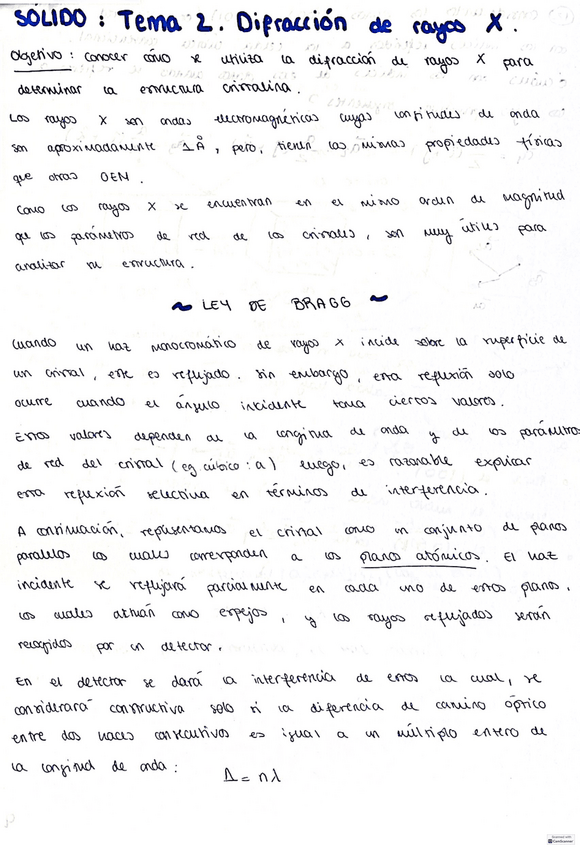 SÓLIDO : Tema 2. Difracción de rayos X.
Objetivo : conocer cómo se utiliza la difracción de rayos X para
determinar la estructura cristalina.
Los rayos X son ondas electromagnéticas cuyas longitudes de onda
son aproximadamente 1Å, pero, tienen las mismas propiedades físicas
que otras OEM.
Como los rayos X se encuentran en el mismo orden de magnitud
que los parámetros de red de los cristales, son muy útiles para
analizar su estructura.
~ LEY DE BRAGG ~
Cuando un haz monocromático de rayos X incide sobre la superficie de
un cristal, este es reflejado. Sin embargo, esta reflexión solo
ocurre cuando el ángulo incidente toma ciertos valores.
Estos valores dependen de la longitud de onda y de los parámetros
de red del cristal (eg cúbico : a) luego, es razonable explicar
esta reflexión selectiva en términos de interferencia.
A continuación, representamos el cristal como un conjunto de planos
paralelos los cuales corresponden a los planos atómicos. El haz
incidente se reflejará parcialmente en cada uno de estos planos,
los cuales actúan como espejos, y los rayos reflejados serán
recogidos por un detector.
En el detector se dará la interferencia de estos la cual, se
considerará constructiva solo si la diferencia de camino óptico
entre dos haces consecutivos es igual a un múltiplo entero de
la longitud de onda :
Δ = nλ
CamScanner